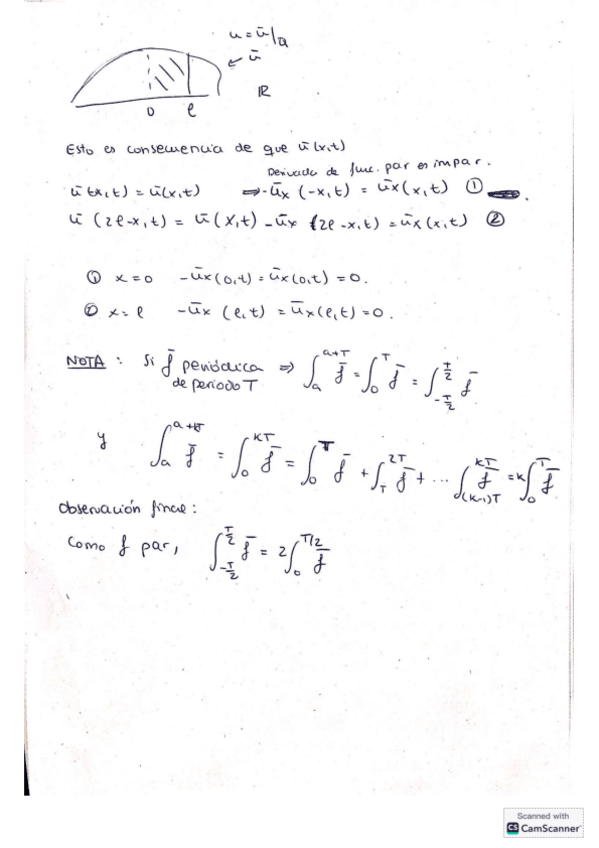 u = ū/Q
ū
ℝ
0 ℓ
Esto es consecuencia de que ū(x,t)
Derivada de func. par es impar.
ū(-x,t) = ū(x,t) ⇒ -ūx(-x,t) = ūx(x,t) ①
ū(2ℓ-x,t) = ū(x,t) -ūx(2ℓ-x,t) = ūx(x,t) ②
① x=0 -ūx(0,t) = ūx(0,t) = 0.
② x=ℓ -ūx(ℓ,t) = ūx(ℓ,t) = 0.
NOTA: Si f̄ periódica ⇒ ∫_a^{a+T} f̄ = ∫_0^T f̄ = ∫_{-T/2}^{T/2} f̄
de periodo T
y ∫_a^{a+kT} f̄ = ∫_0^{kT} f̄ = ∫_0^T f̄ + ∫_T^{2T} f̄ + ... ∫_{(k-1)T}^{kT} f̄ = k∫_0^T f̄
Observación final:
Como f par, ∫_{-T/2}^{T/2} f̄ = 2∫_0^{T/2} f̄
Scanned with
CS CamScanner